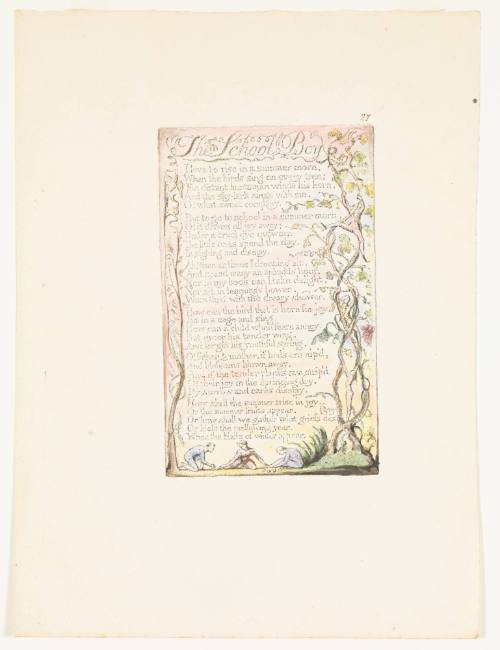 27
The School Boy
I love to rise in a summer morn,
When the birds sing on every tree;
The distant huntsman winds his horn,
And the sky-lark sings with me.
O! what sweet company.
But to go to school in a summer morn
O! it drives all joy away;
Under a cruel eye outworn,
The little ones spend the day,
In sighing and dismay.
Ah! then at times I drooping sit,
And spend many an anxious hour,
Nor in my book can I take delight,
Nor sit in learnings bower,
Worn thro' with the dreary shower.
How can the bird that is born for joy,
Sit in a cage and sing.
How can a child when fears annoy,
But droop his tender wing,
And forget his youthful spring.
O! father & mother, if buds are nip'd,
And blossoms blown away,
And if the tender plants are strip'd
Of their joy in the springing day,
By sorrow and cares dismay,
How shall the summer arise in joy
Or the summer fruits appear.
Or how shall we gather what griefs destroy
Or bless the mellowing year,
When the blasts of winter appear.